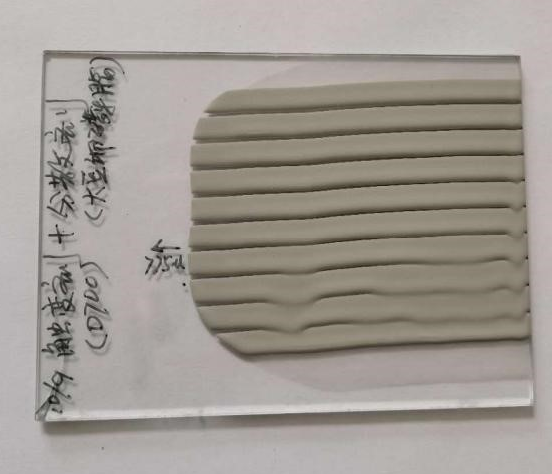 触变剂 + 分散剂
(D700) (大豆卵磷脂)